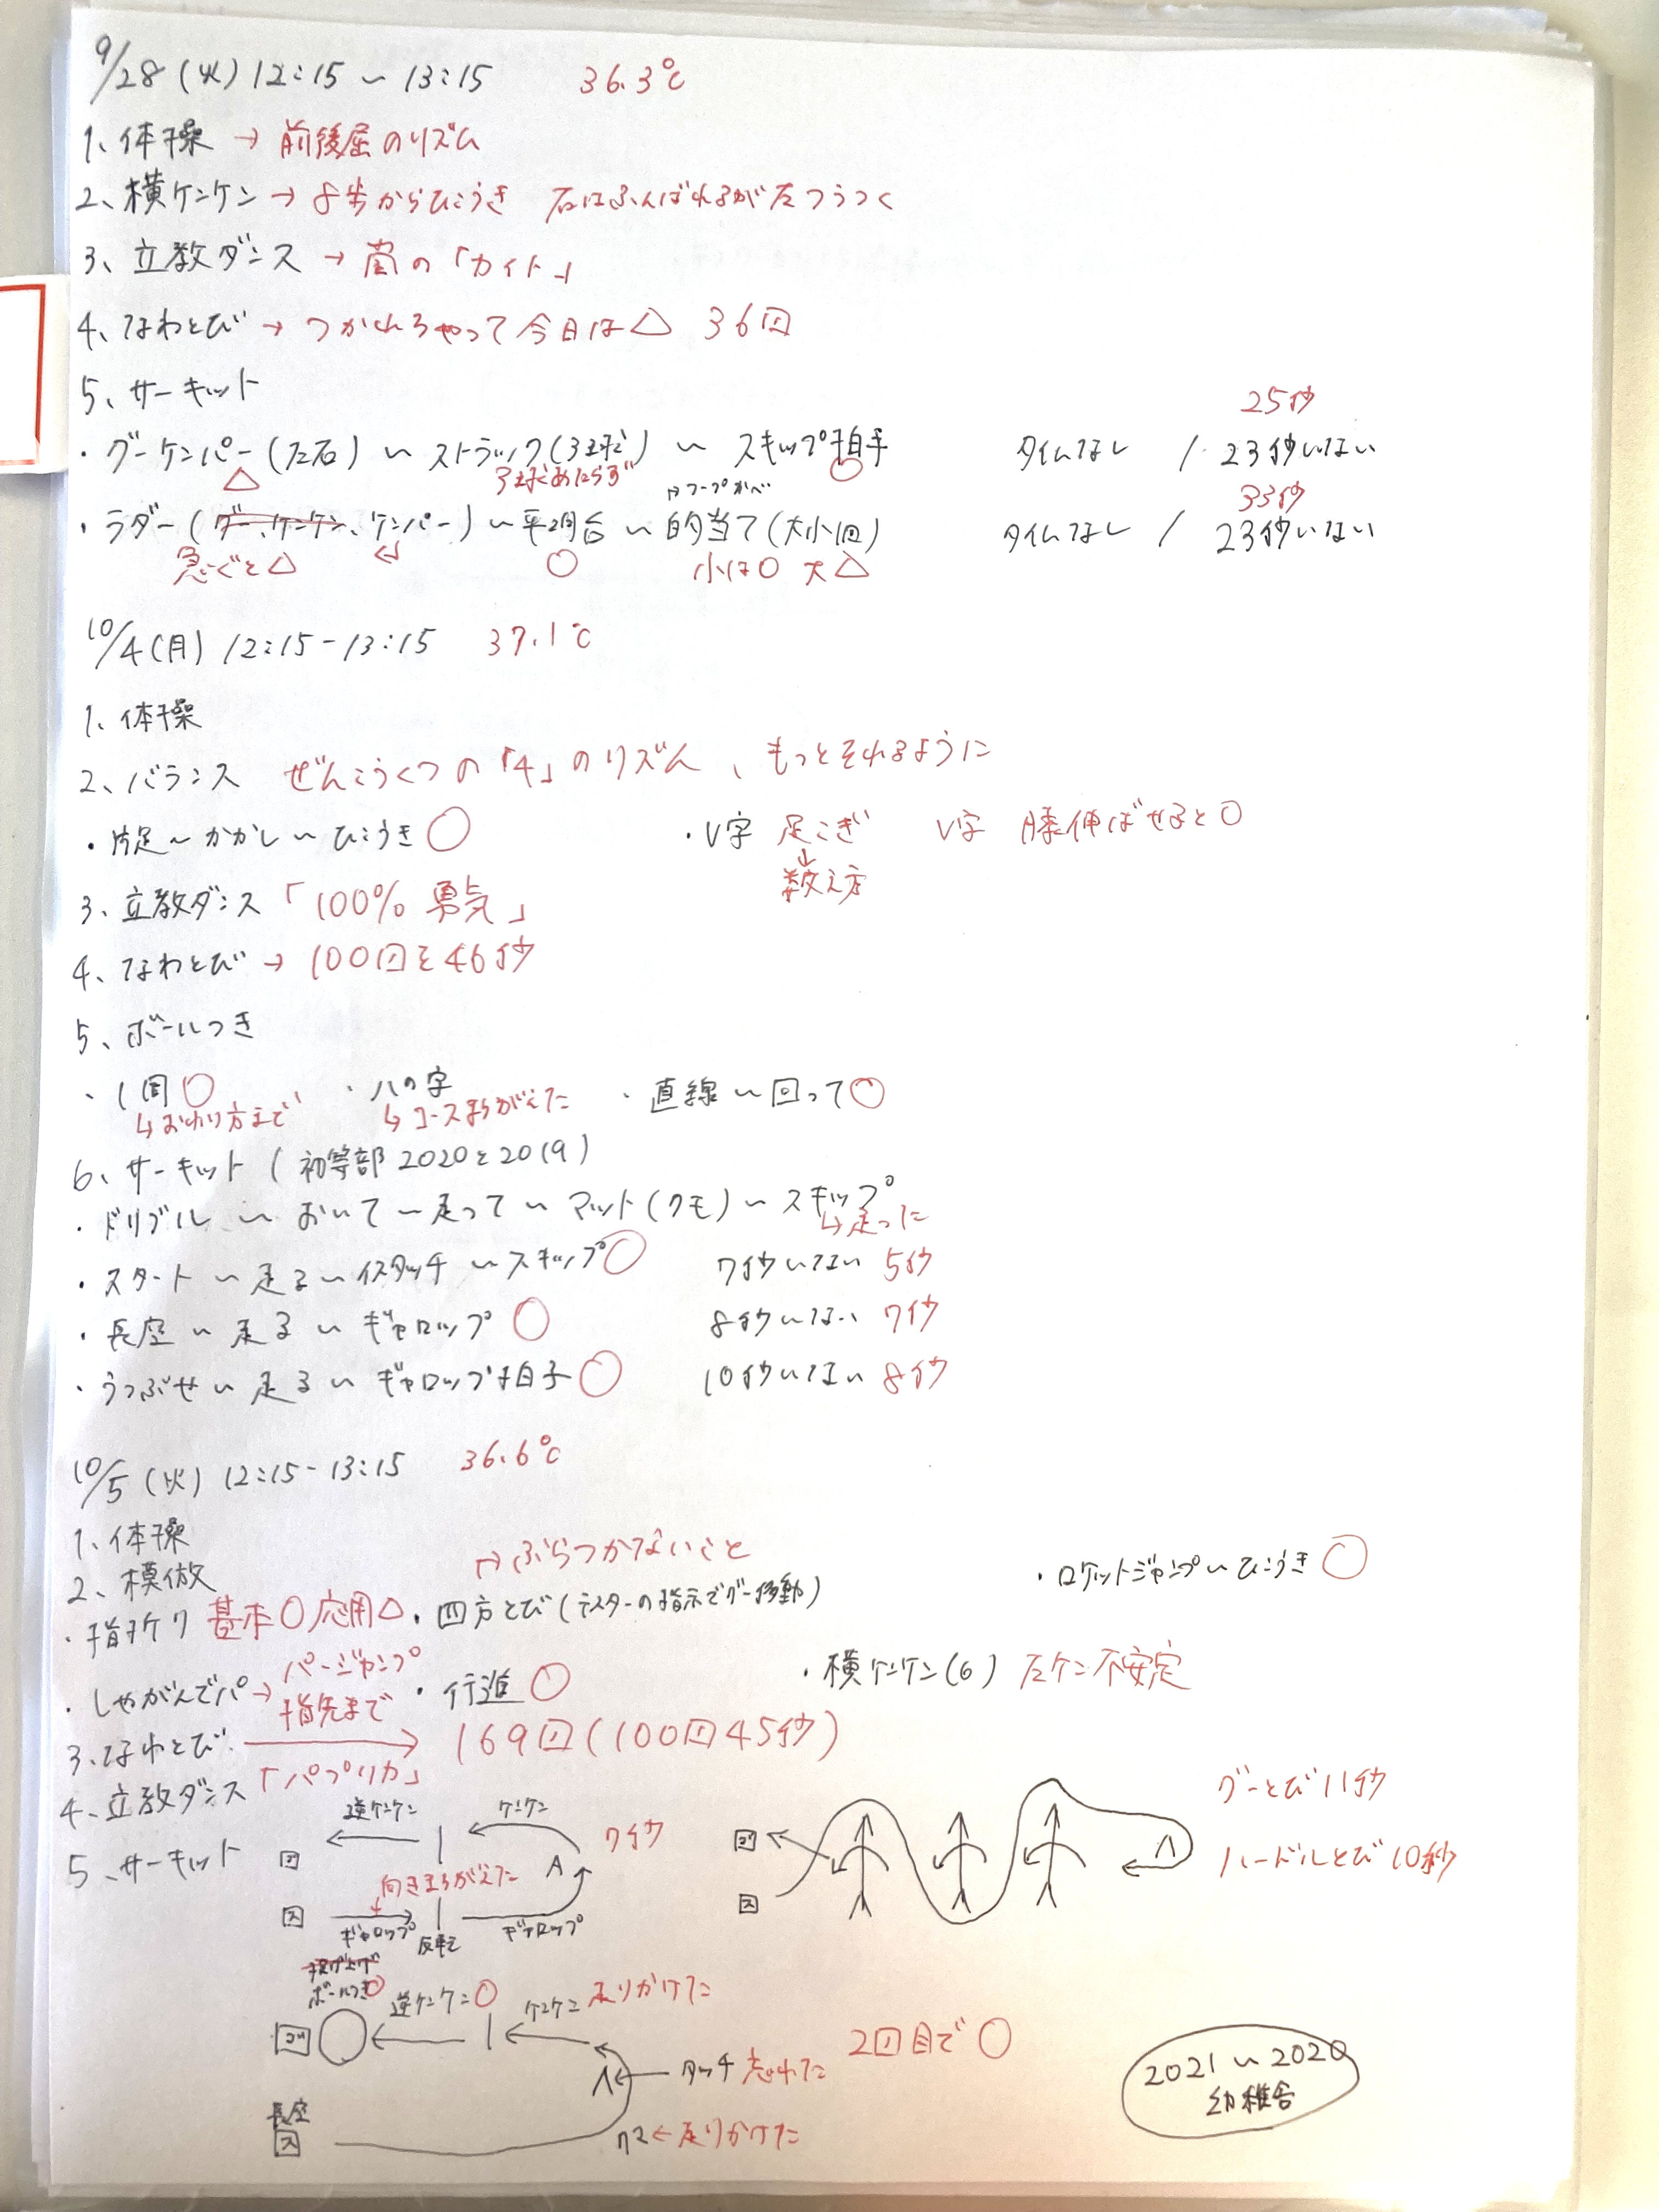 9/28 (火) 12:15〜13:15 36.3℃
1、体操 → 前後屈のリズム
2、横ケンケン → 8歩からひこうき 右はふんばれるが左つうつく
3、立教ダンス → 嵐の「カイト」
4、なわとび → つかれちゃって今日は△ 36回
5、サーキット
25秒
・グーケンパー(左右)〜ストラック(3球)〜スキップ拍手 タイムなし / 23秒いない
△ 3球あたらず ○
→フープかべ 33秒
・ラダー(グー、ケンケン、ケンパー)〜平均台〜的当て(大小回) タイムなし / 23秒いない
急ぐと△ ○ 小は○ 大△
10/4(月) 12:15-13:15 37.1℃
1、体操
2、バランス ぜんこうくつの「4」のリズム、もっとそれるように
・片足〜かかし〜ひこうき○ ・V字 足こぎ V字 膝伸ばせると○
↓
数え方
3、立教ダンス「100%勇気」
4、なわとび → 100回を46秒
5、ボールつき
・1周○ ・八の字 ・直線〜回って○
↳おわり方まで ↳コースまちがえた
6、サーキット(初等部2020と2019)
・ドリブル〜おいて〜走って〜マット(クモ)〜スキップ
↳走った
・スタート〜走る〜イスタッチ〜スキップ○ 7秒いない 5秒
・長座〜走る〜ギャロップ○ 8秒いない 7秒
・うつぶせ〜走る〜ギャロップ拍手○ 10秒いない 8秒
10/5(火) 12:15-13:15 36.6℃
1、体操
2、模倣
→ぶらつかないこと
・指オケ 基本○応用△ ・四方とび(テスターの指示でグー移動) ・ロケットジャンプ〜ひこうき○
・しゃがんでパ→パージャンプ 指先まで ・行進○ ・横ケンケン(6) 左ケン不安定
3、なわとび → 169回(100回45秒)
4、立教ダンス「パプリカ」
5、サーキット
逆ケンケン ケンケン 7秒
回
向きまちがえた
ス ギャロップ 反転 ギャロップ
グーとび11秒
ハードルとび10秒
ゴ
ス
投げ上げ
ボールつき○ 逆ケンケン○ ケンケン 走りかけた
ゴ
2回目で○
タッチ 忘れた
長座
ス
クマ←走りかけた
2021〜2020
幼稚舎